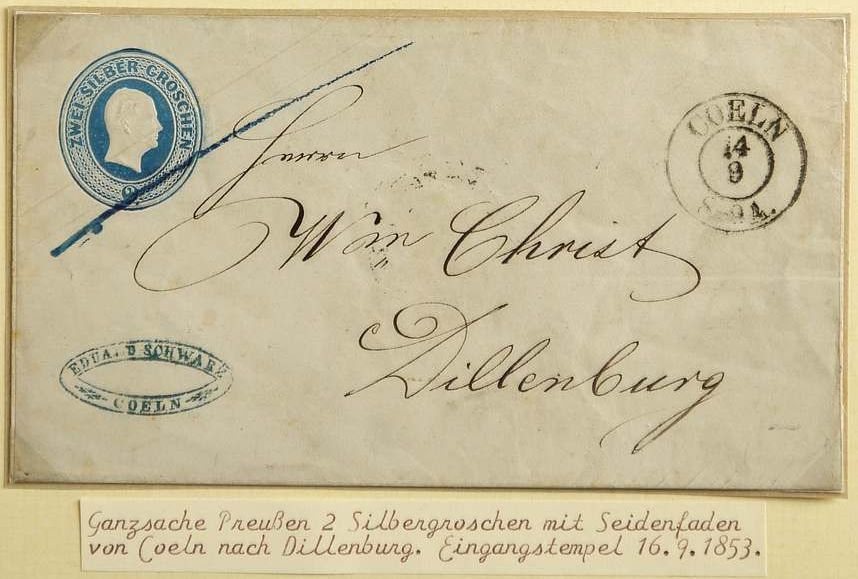 ZWEI SILBER GROSCHEN
2
COELN
14
9
Herrn
Wm Christ
Dillenburg
EDUARD SCHWARZ
COELN
Ganzsache Preußen 2 Silbergroschen mit Seidenfaden
von Coeln nach Dillenburg. Eingangstempel 16.9.1853.